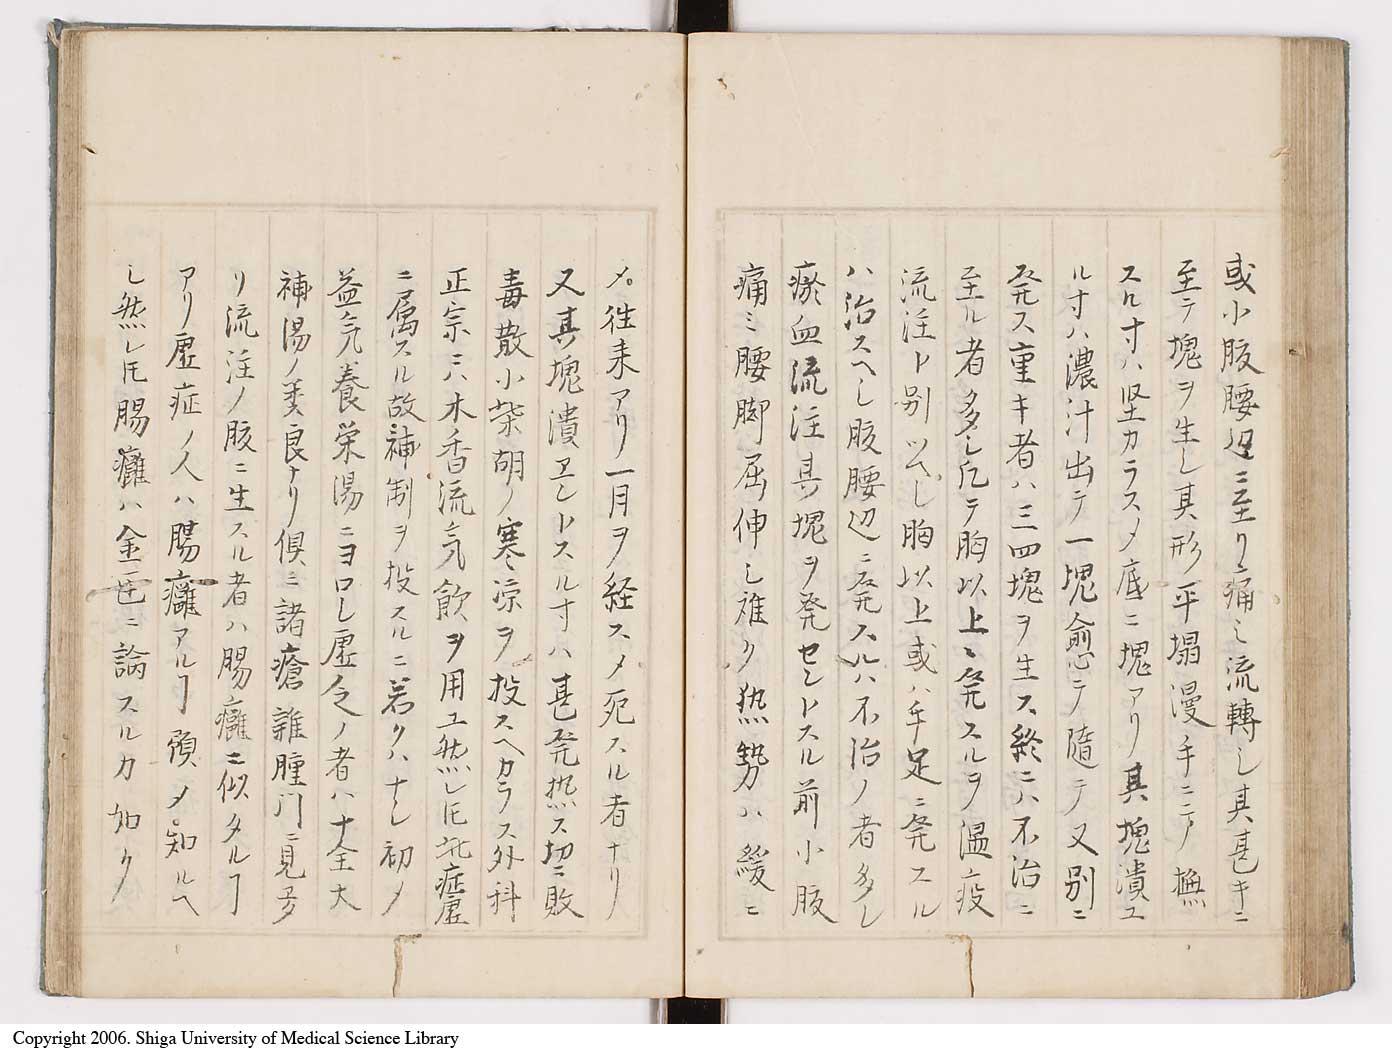 或小腹腰辺ニ至リ痛ミ流轉シ其甚キニ
至テ塊ヲ生シ其形平塌漫手ニテ撫
スル寸ハ堅カラスメ底ニ塊アリ其塊潰ユ
ル寸ハ濃汁出テ一塊愈テ隨テ又別ニ
発ス重キ者ハ三四塊ヲ生ス終ニハ不治ニ
至ル者多シ凡テ胸以上ニ発スルヲ温疫
流注ト別ツヘシ胸以上或ハ手足ニ発スル
ハ治スヘシ腹腰辺ニ発スルハ不治ノ者多シ
瘀血流注其塊ヲ発セントスル前小腹
痛ミ腰脚屈伸シ難ク熱勢ハ緩ニ
メ往来アリ一月ヲ経スメ死スル者ナリ
又其塊潰ヱントスル寸ハ甚発熱ス切ニ敗
毒散小柴胡ノ寒凉ヲ投スヘカラス外科
正宗ニハ木香流気飲ヲ用ユ然レ𪜈此症虚
ニ属スル故補剤ヲ投スルニ若クハナシ初メ
益気養栄湯ニヨロシ虚乏ノ者ハ十全大
補湯ノ類良ナリ倶ニ諸瘡雑腫門ニ見タ
リ流注ノ腹ニ生スル者ハ腸癰ニ似タルヿ
アリ虚症ノ人ハ腸癰アルヿ須メ知ルヘ
シ然レ𪜈腸癰ハ金匱ニ論スルカ如ク
Copyright 2006. Shiga University of Medical Science Library